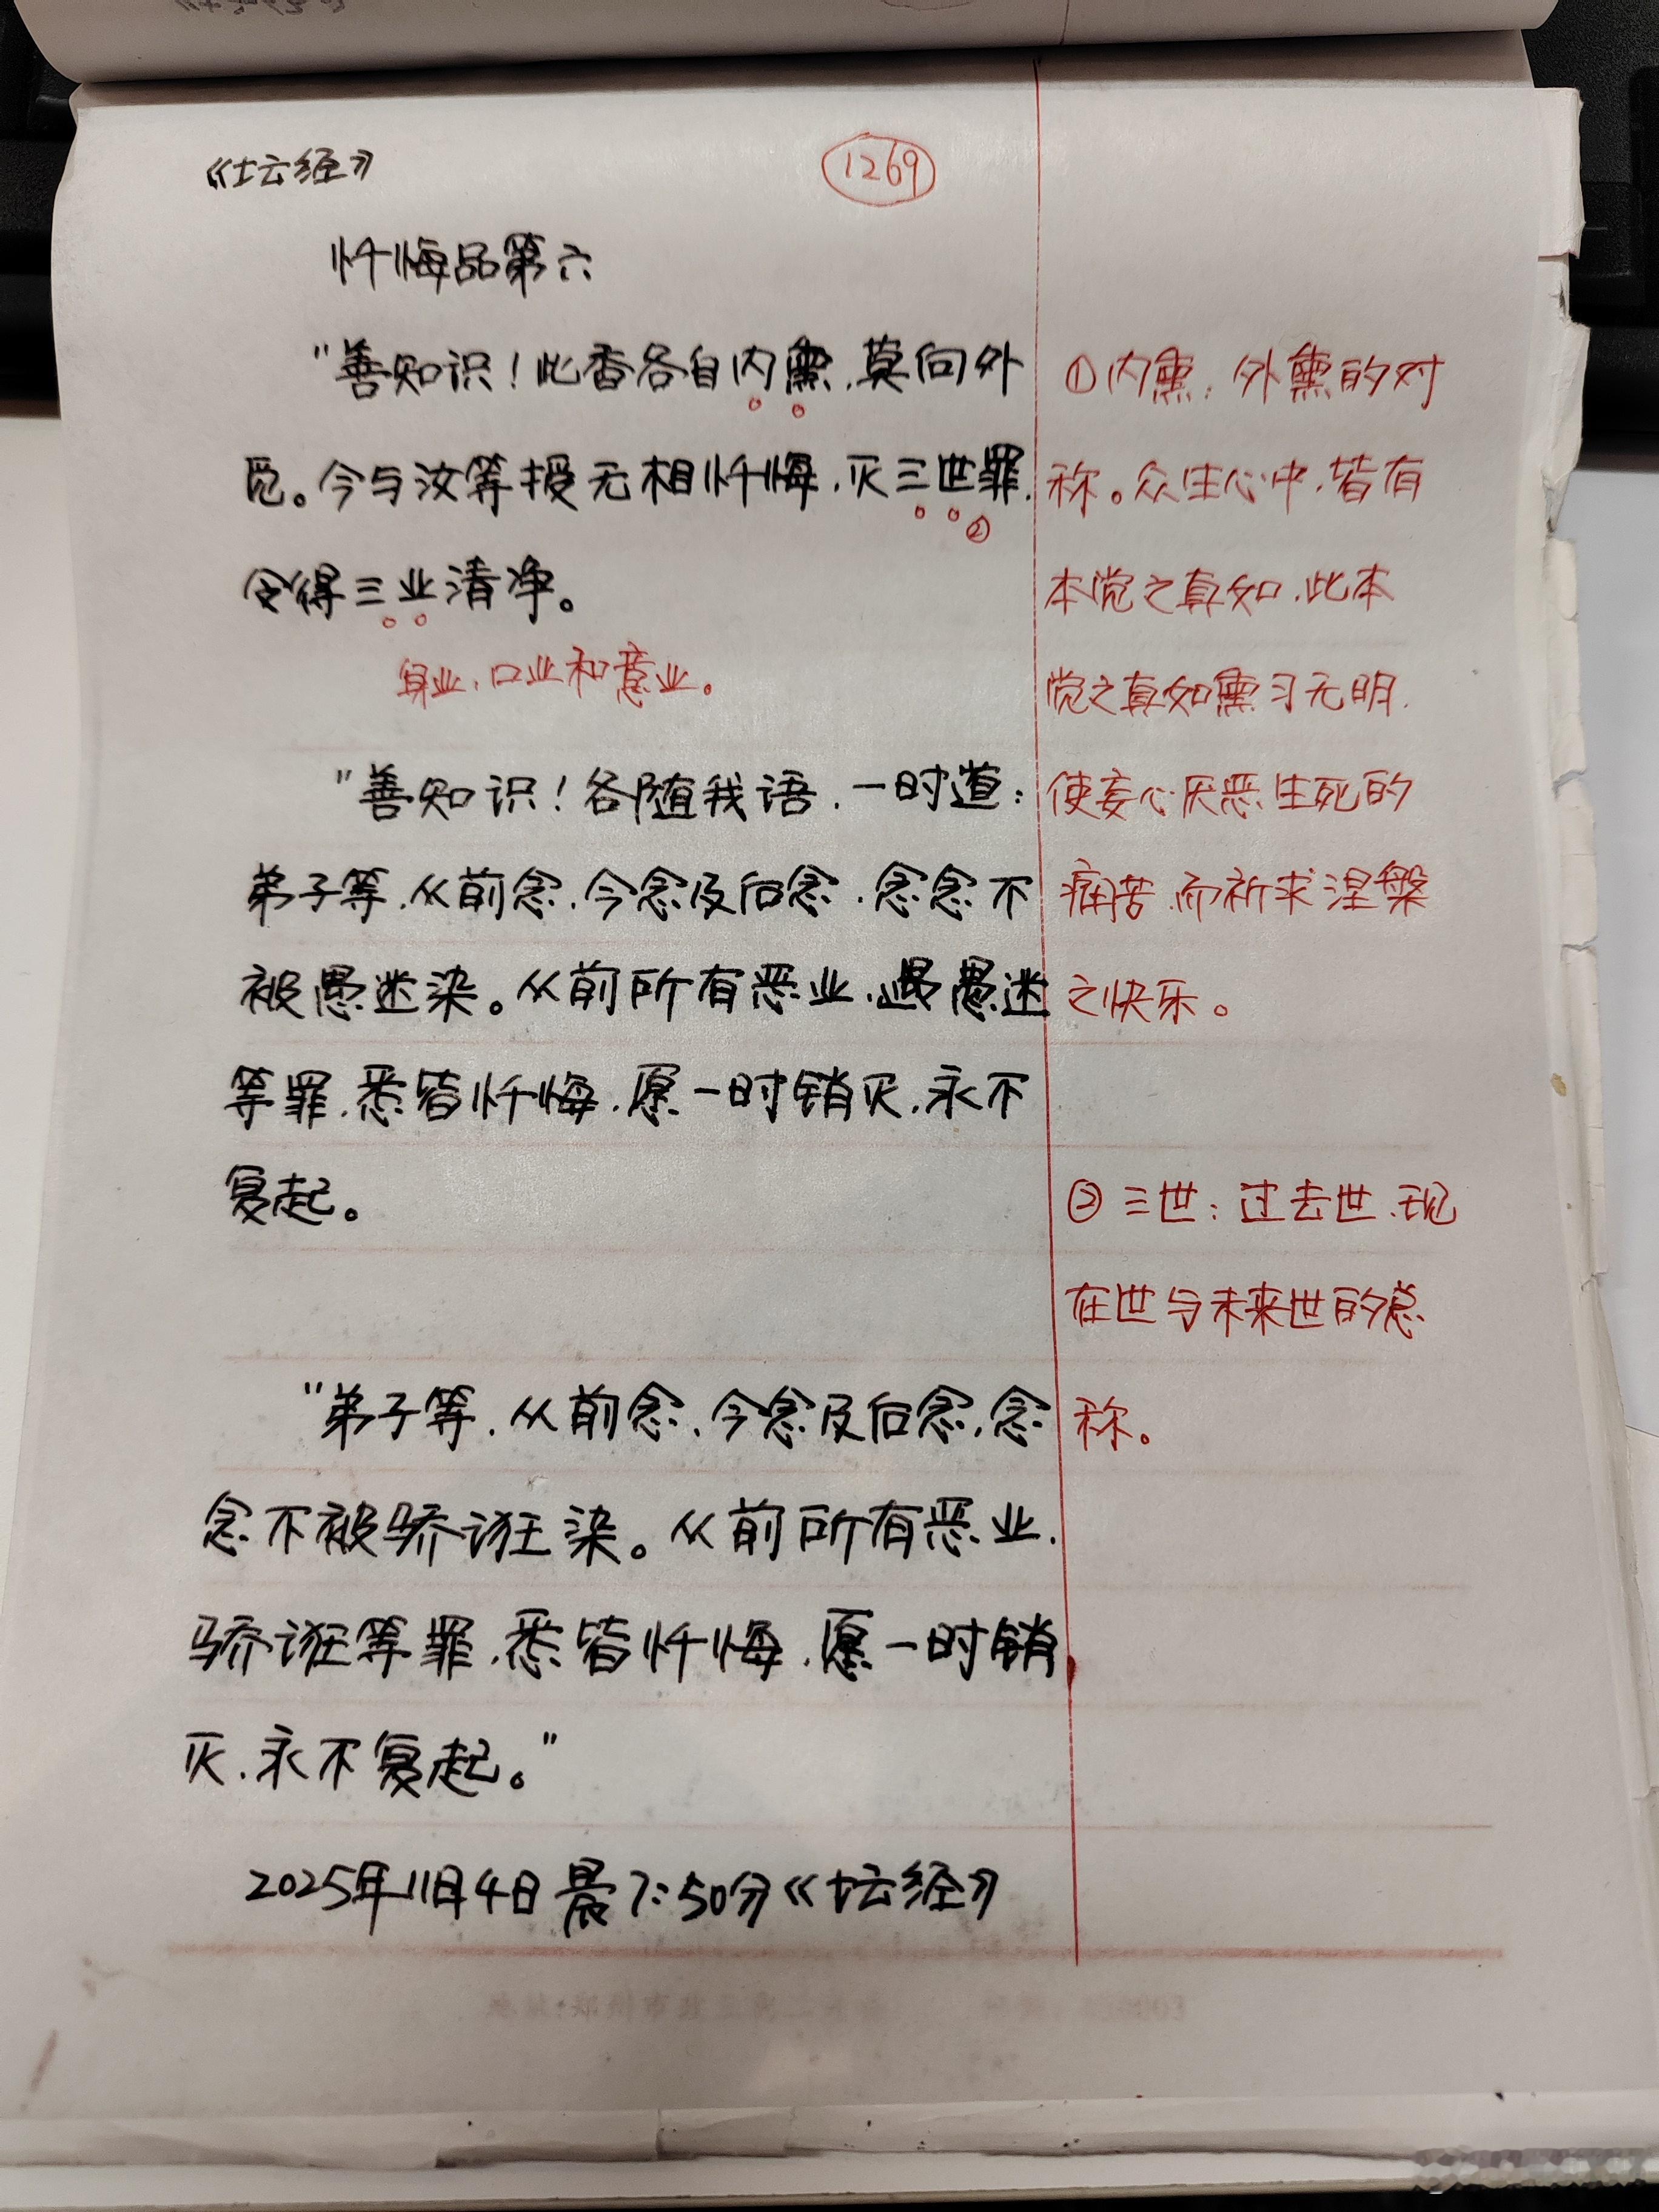 《坛经》
1269
忏悔品第六
"善知识！此香各自内熏，莫向外
觅。今与汝等授无相忏悔，灭三世罪，
②
令得三业清净。
身业、口业和意业。
"善知识！各随我语，一时道：
弟子等，从前念、今念及后念，念念不
被愚迷染。从前所有恶业、愚迷
等罪，悉皆忏悔，愿一时销灭，永不
复起。
"弟子等，从前念、今念及后念，念
念不被骄诳染。从前所有恶业、
骄诳等罪，悉皆忏悔，愿一时销
灭，永不复起。"
2025年11月4日晨7:50分《坛经》
①内熏：外熏的对
称。众生心中，皆有
本觉之真如，此本
觉之真如熏习无明，
使妄心厌恶生死的
痛苦，而祈求涅槃
之快乐。
②三世：过去世、现
在世与未来世的总
称。